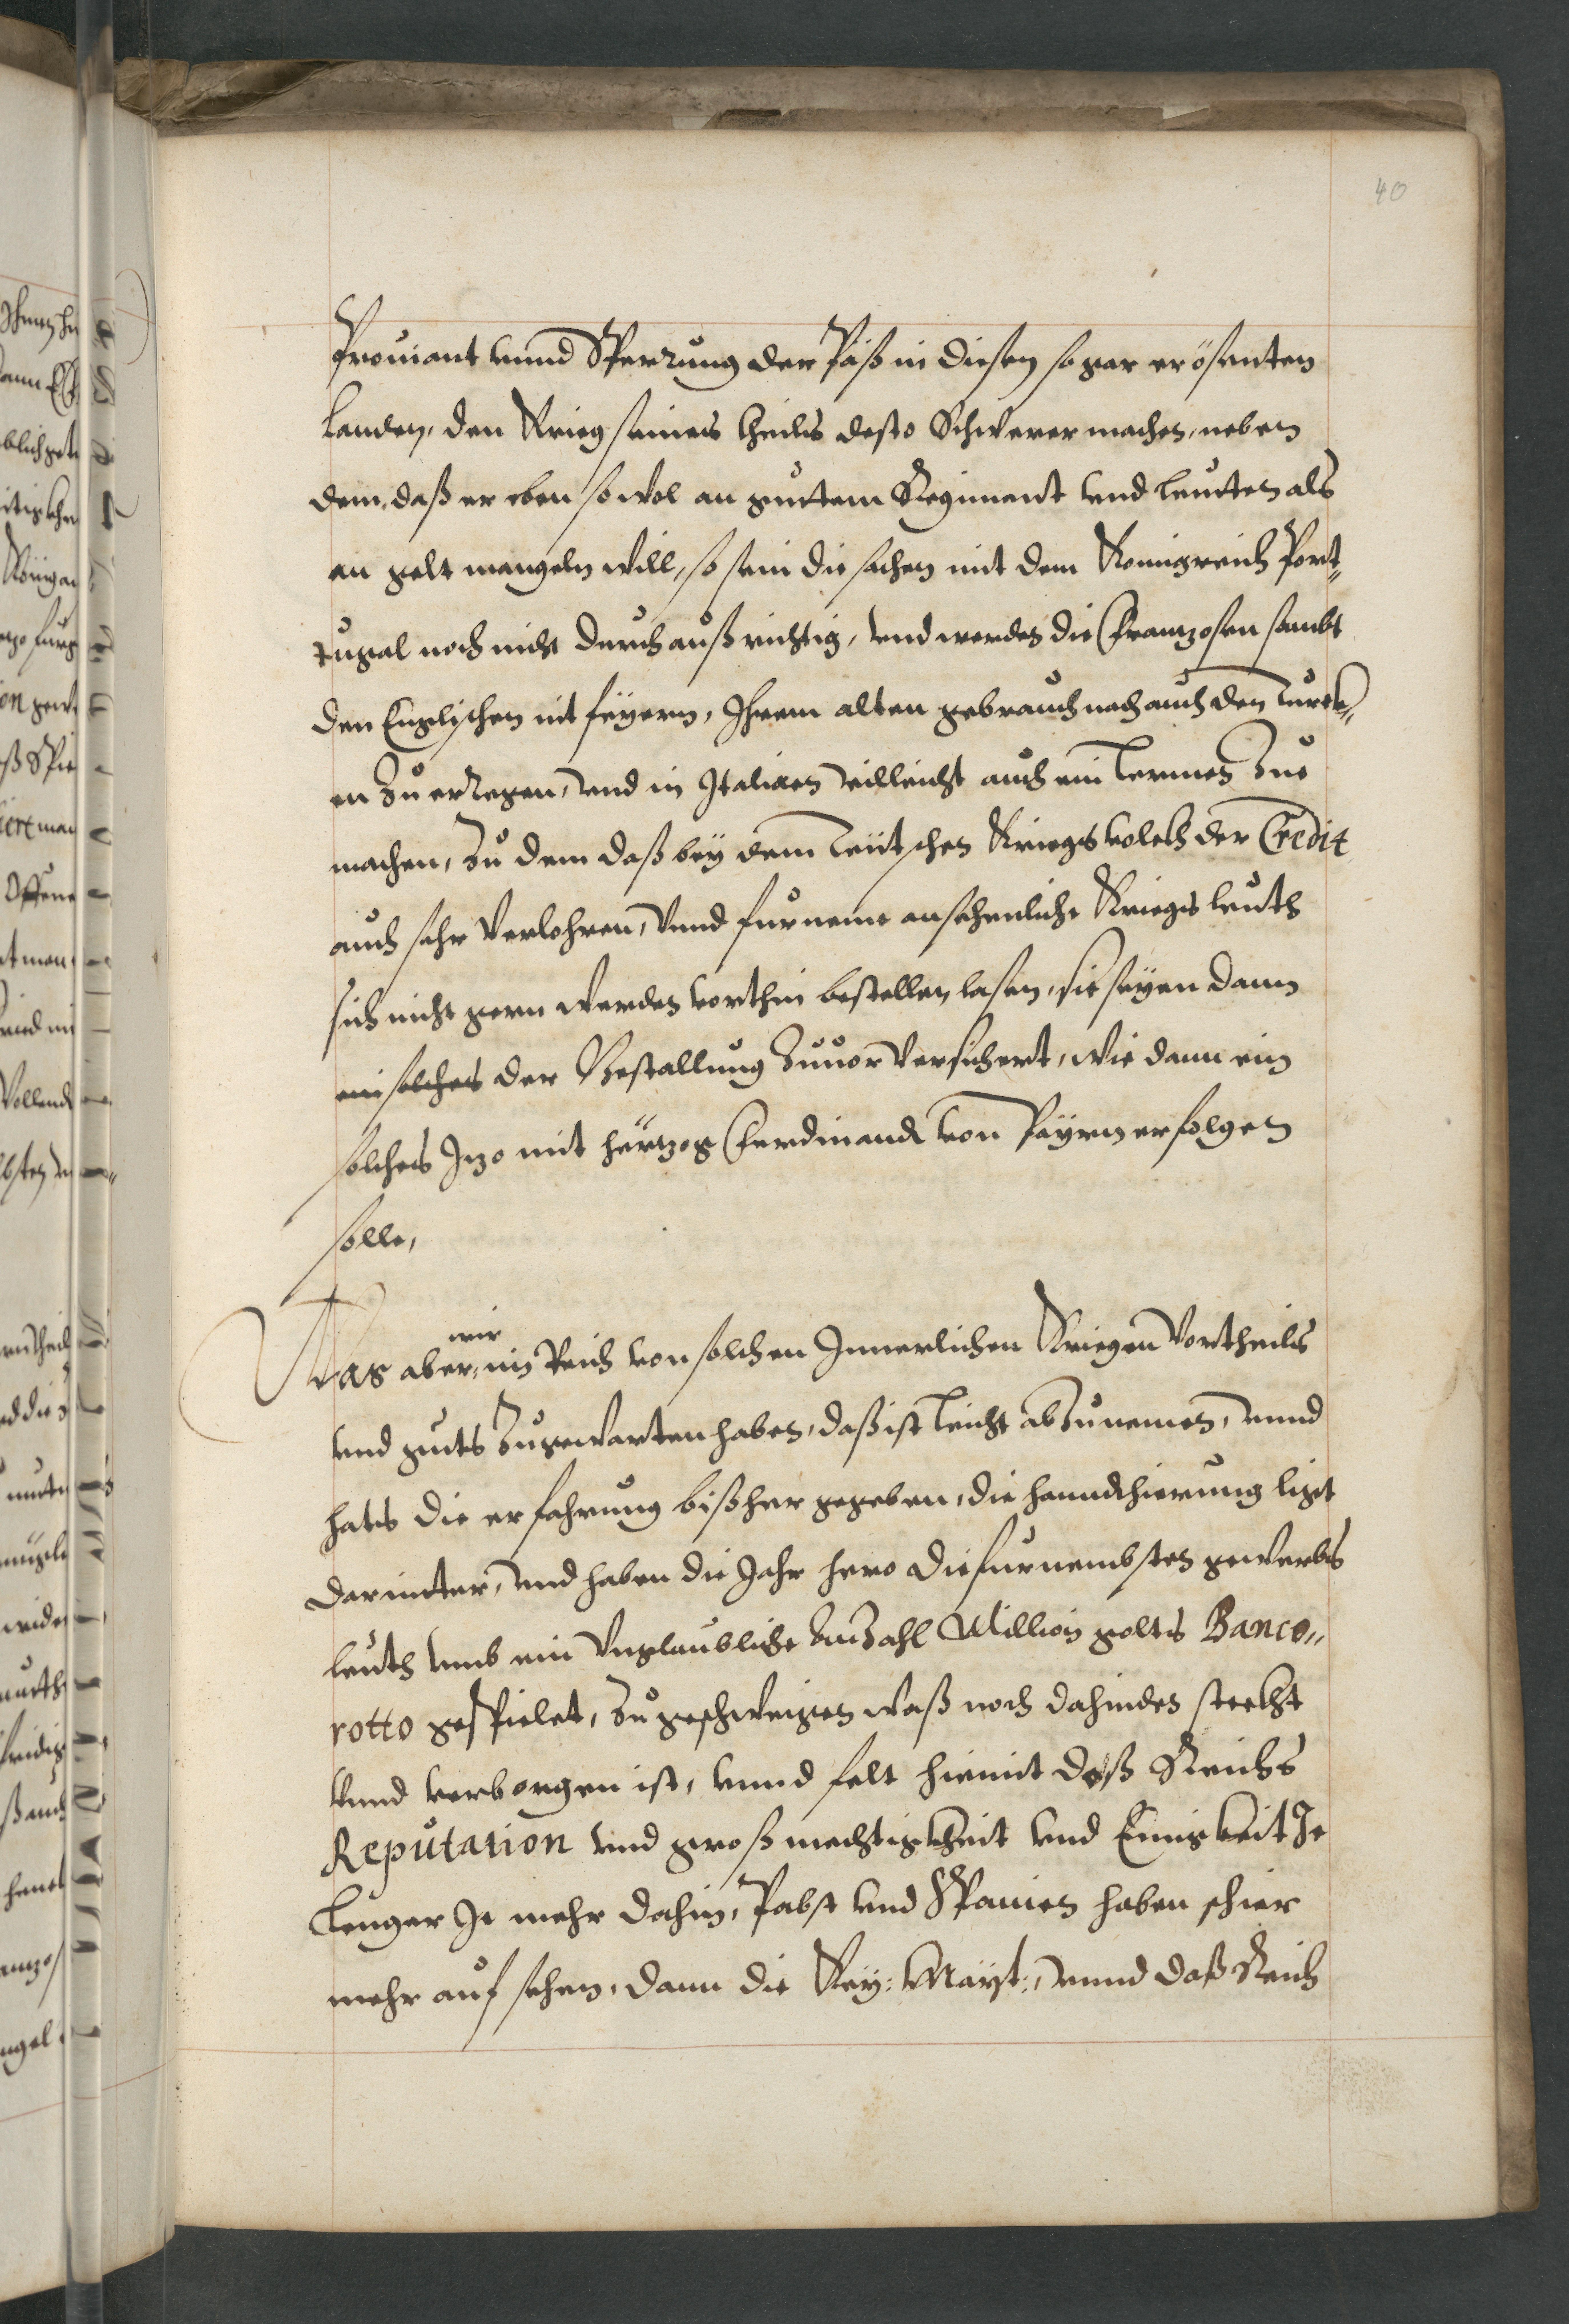 40
Prouiant vnnd Sperrung der Päß in diesen so gar erösenten
Landen, den Krieg seines theils desto Schwerer machen, neben
dem, daß er eben so wol an guttem Regiment vnd leutten als
an gelt mangeln will, so sein die sachen mit dem Konigreich Port„
tugal noch nicht durchauß richtig, vnd werden die Franzosen sambt
den Englischen nit feyern, Ihrem alten gebrauch nach auch den Turck„
en Zu erregen, vnd in Italien villeicht auch ein Lermen Zue
machen, Zu dem daß bey dem Teütschen Kriegsvolckh der Credit
auch sehr Verlohren, Vnnd furneme ansehenliche Kriegs leuth
sich nicht gern werden vorthin bestellen lasen, sie seyen dann
ein solches der Bestallung Zuuor Versichert, wie dann ein
solches Izo mit hertzog Ferdinandt von Payrn erfolgen
solle,
Was aber wir im Reich von solchen Innerlichen Kriegen Vortheils
vnd guets Zugewarten haben, daß ist leicht abzunemen, vnnd
hats die erfahrung bißher gegeben, die hanndthierung ligt
darnieder, vnd haben die Jahr hero die furnembsten gewerbs
leuth vmb ein Vnglaubliche Anzahl Million golts Banco„
rotto gespielet, Zu geschweigen waß noch dahinden steckht
Vnnd verborgen ist, vnnd felt hiemit deß Reichs
Reputation vnd groß mechtigkheit vnd Einigkeit Je
lenger Je mehr dahin, Pabst vnd Spanien haben schier
mehr auf sehen, dann die Key: Mayt:, vnnd daß Reich